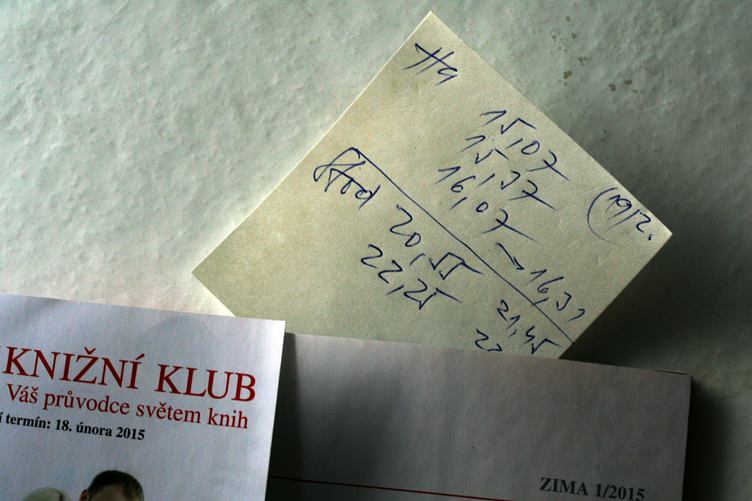 15,07
15,37
16,07 → 16,37
(19/2.
20,55 21,45
22,25 22
KNIŽNÍ KLUB
Váš průvodce světem knih
í termín: 18. února 2015
ZIMA 1/2015